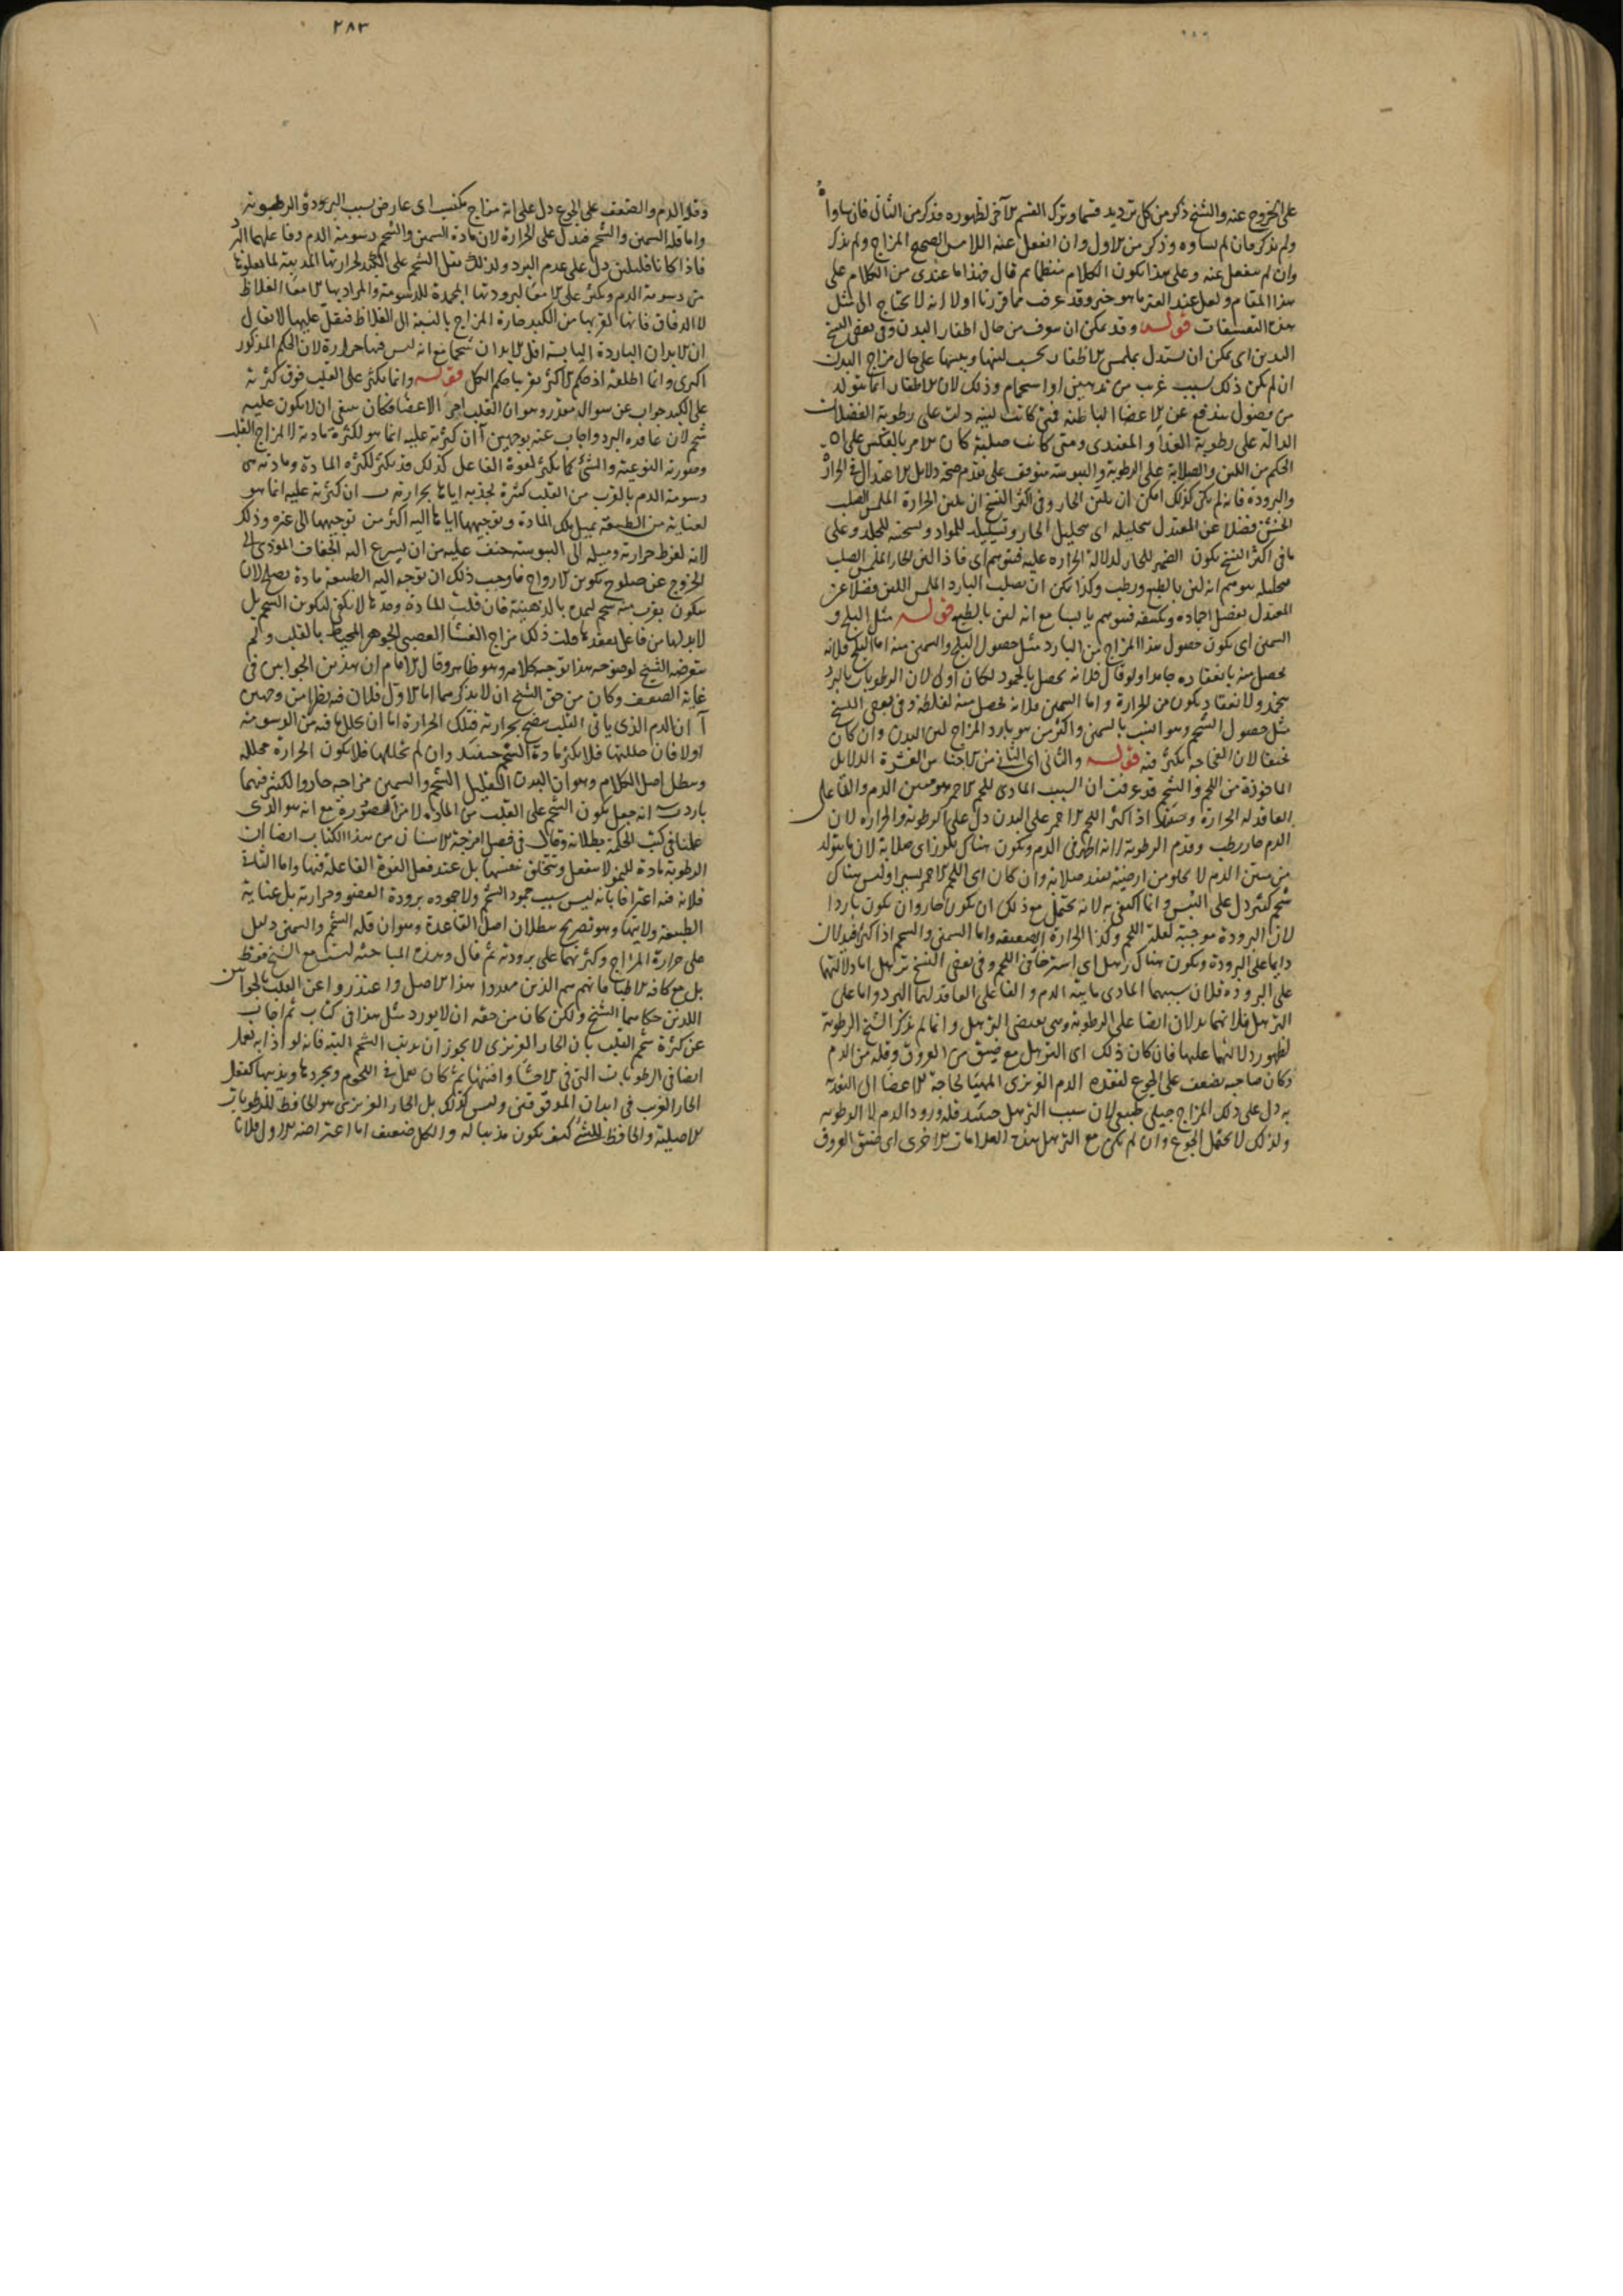 على الخروج عنه والشيخ ذكر من كل ترديد قسما وترك القسم الآخر لظهوره فذكر من الثاني فان ساواه
ولم يذكر فان لم يساوه وذكر من الاول وان انفعل عنه اللامس الصحيح المزاج ولم يذكر
وان لم ينفعل عنه وعلى هذا يكون الكلام منتظما ثم قال فهذا ما عندي من الكلام على
هذا المقام ولعل عند الغير ما هو خير وقد عرفت مما قررنا اولا انه لا يحتاج الى مثل
هذه التعسفات قوله وقد يمكن ان يتعرف من حال اظفار اليدين وفي بعض النسخ
اليدين اى يمكن ان يستدل بملمس الاظفار بحسب لينها ويبسها على حال مزاج البدن
ان لم يكن ذلك بسبب غريب من تدهين او استحمام وذلك لان الاظفار انما يتولد
من فضول يندفع عن الاعضا الباطنة فمتى كانت لينه دلت على رطوبة الفضلات
الدالة على رطوبة الغذاء والمغتدى ومتى كانت صلبة كان الامر بالعكس على ان
الحكم من اللين والصلابة على الرطوبة واليبوسة متوقف على تقدم صحة دلايل الاعتدال في الحرارة
والبرودة فانه لم يكن كذلك امكن ان يلين الحار وفي اكثر النسخ ان يلين الحرارة الملمس الصلب
الخشن فضلا عن المعتدل بتحليله اى بتحليل الحار وتسييله للمواد وتسخينه للجلد وعلى
ما في اكثر النسخ يكون الضمير للحار لدلالة الحراره عليه فيتوهم اى فاذا الين الحار الملمس الصلب
بتحليله يتوهم انه لين بالطبع ورطب وكذا يمكن ان يصلب البارد الملمس اللين فضلا عن
المعتدل بفضل اجماده وتكثيفه فيتوهم يابسا مع انه لين بالطبع قوله مثل الثلج و
السمين اى يكون حصول هذا المزاج من البارد مثل حصول الثلج والسمين منه اما الثلج فلانه
يحصل منه بانعقاده جامدا ولو قال فلانه يحصل بالجمود لكان اولى لان الرطوبات بالبرد
يتجمد ولا نعقاد يكون من الحرارة واما السمين فلانه يحصل منه لغلظه وفي بعض النسخ
مثل حصول الشحم وهو انسب بالسمين واكثر من هو بارد المزاج لين البدن وان كان
نحيفا لان الفجاجه يكثر فيه قوله والثاني اى الثاني من الاجناس العشرة الدلايل
الماخوذة من اللحم والشحم قد عرفت ان السبب المادى للحم الاحمر هو متين الدم والفاعل
العاقد له الحرارة وحينئذ اذا كثر اللحم الاحمر على البدن دل على الرطوبة والحراره لان
الدم حار رطب وقدم الرطوبة لانه اظهر في الدم ويكون هناك تلزز اى صلابة لان ما يتولد
من متين الدم لا يخلو من ارضية يفيد صلابة وان كان اى اللحم الاحمر يسيرا وليس هناك
شحم كثير دل على اليبس وانما اكتفى به لانه يحتمل مع ذلك ان يكون حار وان يكون باردا
لان البرودة موجبة لقلة اللحم وكذا الحرارة الضعيفه واما السمين والشحم اذا كثرا فيدلان
دايما على البرودة ويكون هناك ترهل اى استرخا في اللحم وفي بعض النسخ ترهل اما دلالتهما
على البروده فلان سببهما المادى مايية الدم والفاعلى العاقد لهما البرد واما على
الترهل فلانهما يدلان ايضا على الرطوبة وهى يقتضى الترهل وانما لم يذكر الشيخ الرطوبة
لظهور دلالتهما عليها فان كان ذلك اى الترهل مع ضيق من العروق وقلة من الدم
وكان صاحبه يضعف على الجوع لفقده الدم الغريزى المهيا لحاجة الاعضا الى التغذيه
به دل على ذلك المزاج جبلى طبيعى لان سبب الترهل حينئذ قلة ورود الدم لا الرطوبه
ولذلك لا يحتمل الجوع وان لم يكن مع الترهل هذه العلامات الاخرى اى ضيق العروق
٢٨٣
وقلة الدم والضعف على الجوع دل على انه مزاج مكتسب اى عارض بسبب البرودة والرطوبة
واما قلة السمين والشحم فيدل على الحرارة لان مادة السمين والشحم دسومة الدم وفاعلهما البرد
فاذا كانا قليلين دل على عدم البرد ولذلك يقل الشحم على الكبد لحرارتها المذيبة لما يعلوها
من دسومة الدم ويكثر على الامعا لبرودتها المجمدة للدسومة والمراد بها الامعا الغلاظ
لا الدقاق فانها لقربها من الكبد حارة المزاج بالنسبة الى الغلاظ فيقل عليها لا يقال
ان الابدان الباردة اليابسة اقل الابدان شحما مع انه ليس فيها حرارة لان الحكم المذكور
اكثرى وانما اطلقه اذ حكم الاكثر يقرب من حكم الكل قوله وانما يكثر على القلب فوق كثرته
على الكبد جواب عن سوال مقدر وهو ان القلب احر الاعضا فكان ينبغى ان لا يكون عليه
شحم لان عاقده البرد واجاب عنه بوجهين آ ان كثرته عليه انما هو لكثرة مادته لا لمزاج القلب
وصورته النوعية والشئ كما يكثر لقوة الفاعل كذلك قد يكثر لكثره المادة ومادته هى
دسومة الدم بالقرب من القلب كثيرة لجذبه اياها بحرارته ب ان كثرته عليه انما هو
لعناية من الطبيعة بمثل تلك المادة وتوجيهها اياها اليه اكثر من توجيهها الى غيره وذلك
لانه لفرط حرارته وميله الى اليبوسة خيف عليه من ان يسرع اليه الجفاف المؤدى الى
الخروج عن صلوح تكوين الارواح فاوجب ذلك ان توجه اليه الطبيعة مادة يصلح لان
يتكون بقرب منه شحم ليمده بالدهنية فان قلت المادة وحدها لا يكفى لتكون الشحم بل
لابد لها من فاعل يعقدها قلت ذلك مزاج الغشا العصبى الجوهر المحيط بالقلب ولم
يتعرضه الشيخ لوضوحه هذا توجيه كلامه وهو ظاهر وقال الامام ان هذين الجوابين في
غاية الضعف وكان من حق الشيخ ان لا يذكرهما اما الاول فلان فيه نظر من وجهين
آ ان الدم الذى ياتى القلب ينضج بحرارته فتلك الحرارة اما ان يحلل ما فيه من الدسومة
اولا فان حللتها فلا يكثر مادة الشحم حينئذ وان لم تحللها فلا يكون الحرارة محللة
وبطل اصل الكلام وهو ان البدن القليل الشحم والسمين مزاجه حار والكثير فيهما
بارد ب انه جعل يكون الشحم على القلب من المادة لا من المصورة مع انه هو الذى
علمنا في كتب الحكمة بطلانه وقال في فصل امزجة الاسنان من هذا الكتاب ايضا ان
الرطوبة مادة للنمو لا يتفعل ويتخلق بنفسها بل عند فعل القوة الفاعلة فيها واما الثاني
فلانه فيه اعترافا بانه ليس سبب جمود الشحم ولا جموده برودة العضو وحرارته بل عناية
الطبيعة ولايتها وهو تصريح ببطلان اصل القاعدة وهو ان قلة الشحم والسمين دليل
على حرارة المزاج وكثرتهما على برودته ثم قال وهذه المباحثه ليست مع الشيخ فقط
بل مع كافة الاطبا فانهم هم الذين مهدوا هذا الاصل واعتذروا عن القلب بالجوابين
اللذين حكاهما الشيخ ولكن كان من حقه ان لا يورد مثل هذا في كتاب ثم اجاب
عن كثرة شحم القلب بان الحار الغريزى لا يجوز ان يذيب الشحم البته فانه لو اذابه لعمل
ايضا في الرطوبات التى في الاحشا وافنتها ثم كان يعمل في اللحوم ويجردها ويذيبها كفعل
الحار الغريب في ابدان المدقوقين وليس كذلك بل الحار الغريزى هو الحافظ للرطوبات
الاصلية والحافظ للشئ كيف يكون مذيبا له والكل ضعيف اما اعتراضه الاول فلانا